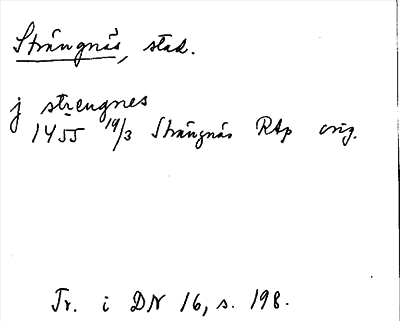 Strängnäs, stad.
j strengnes
1455 19/3 Strängnäs RAp orig.
Tr. i DN 16, s. 198.